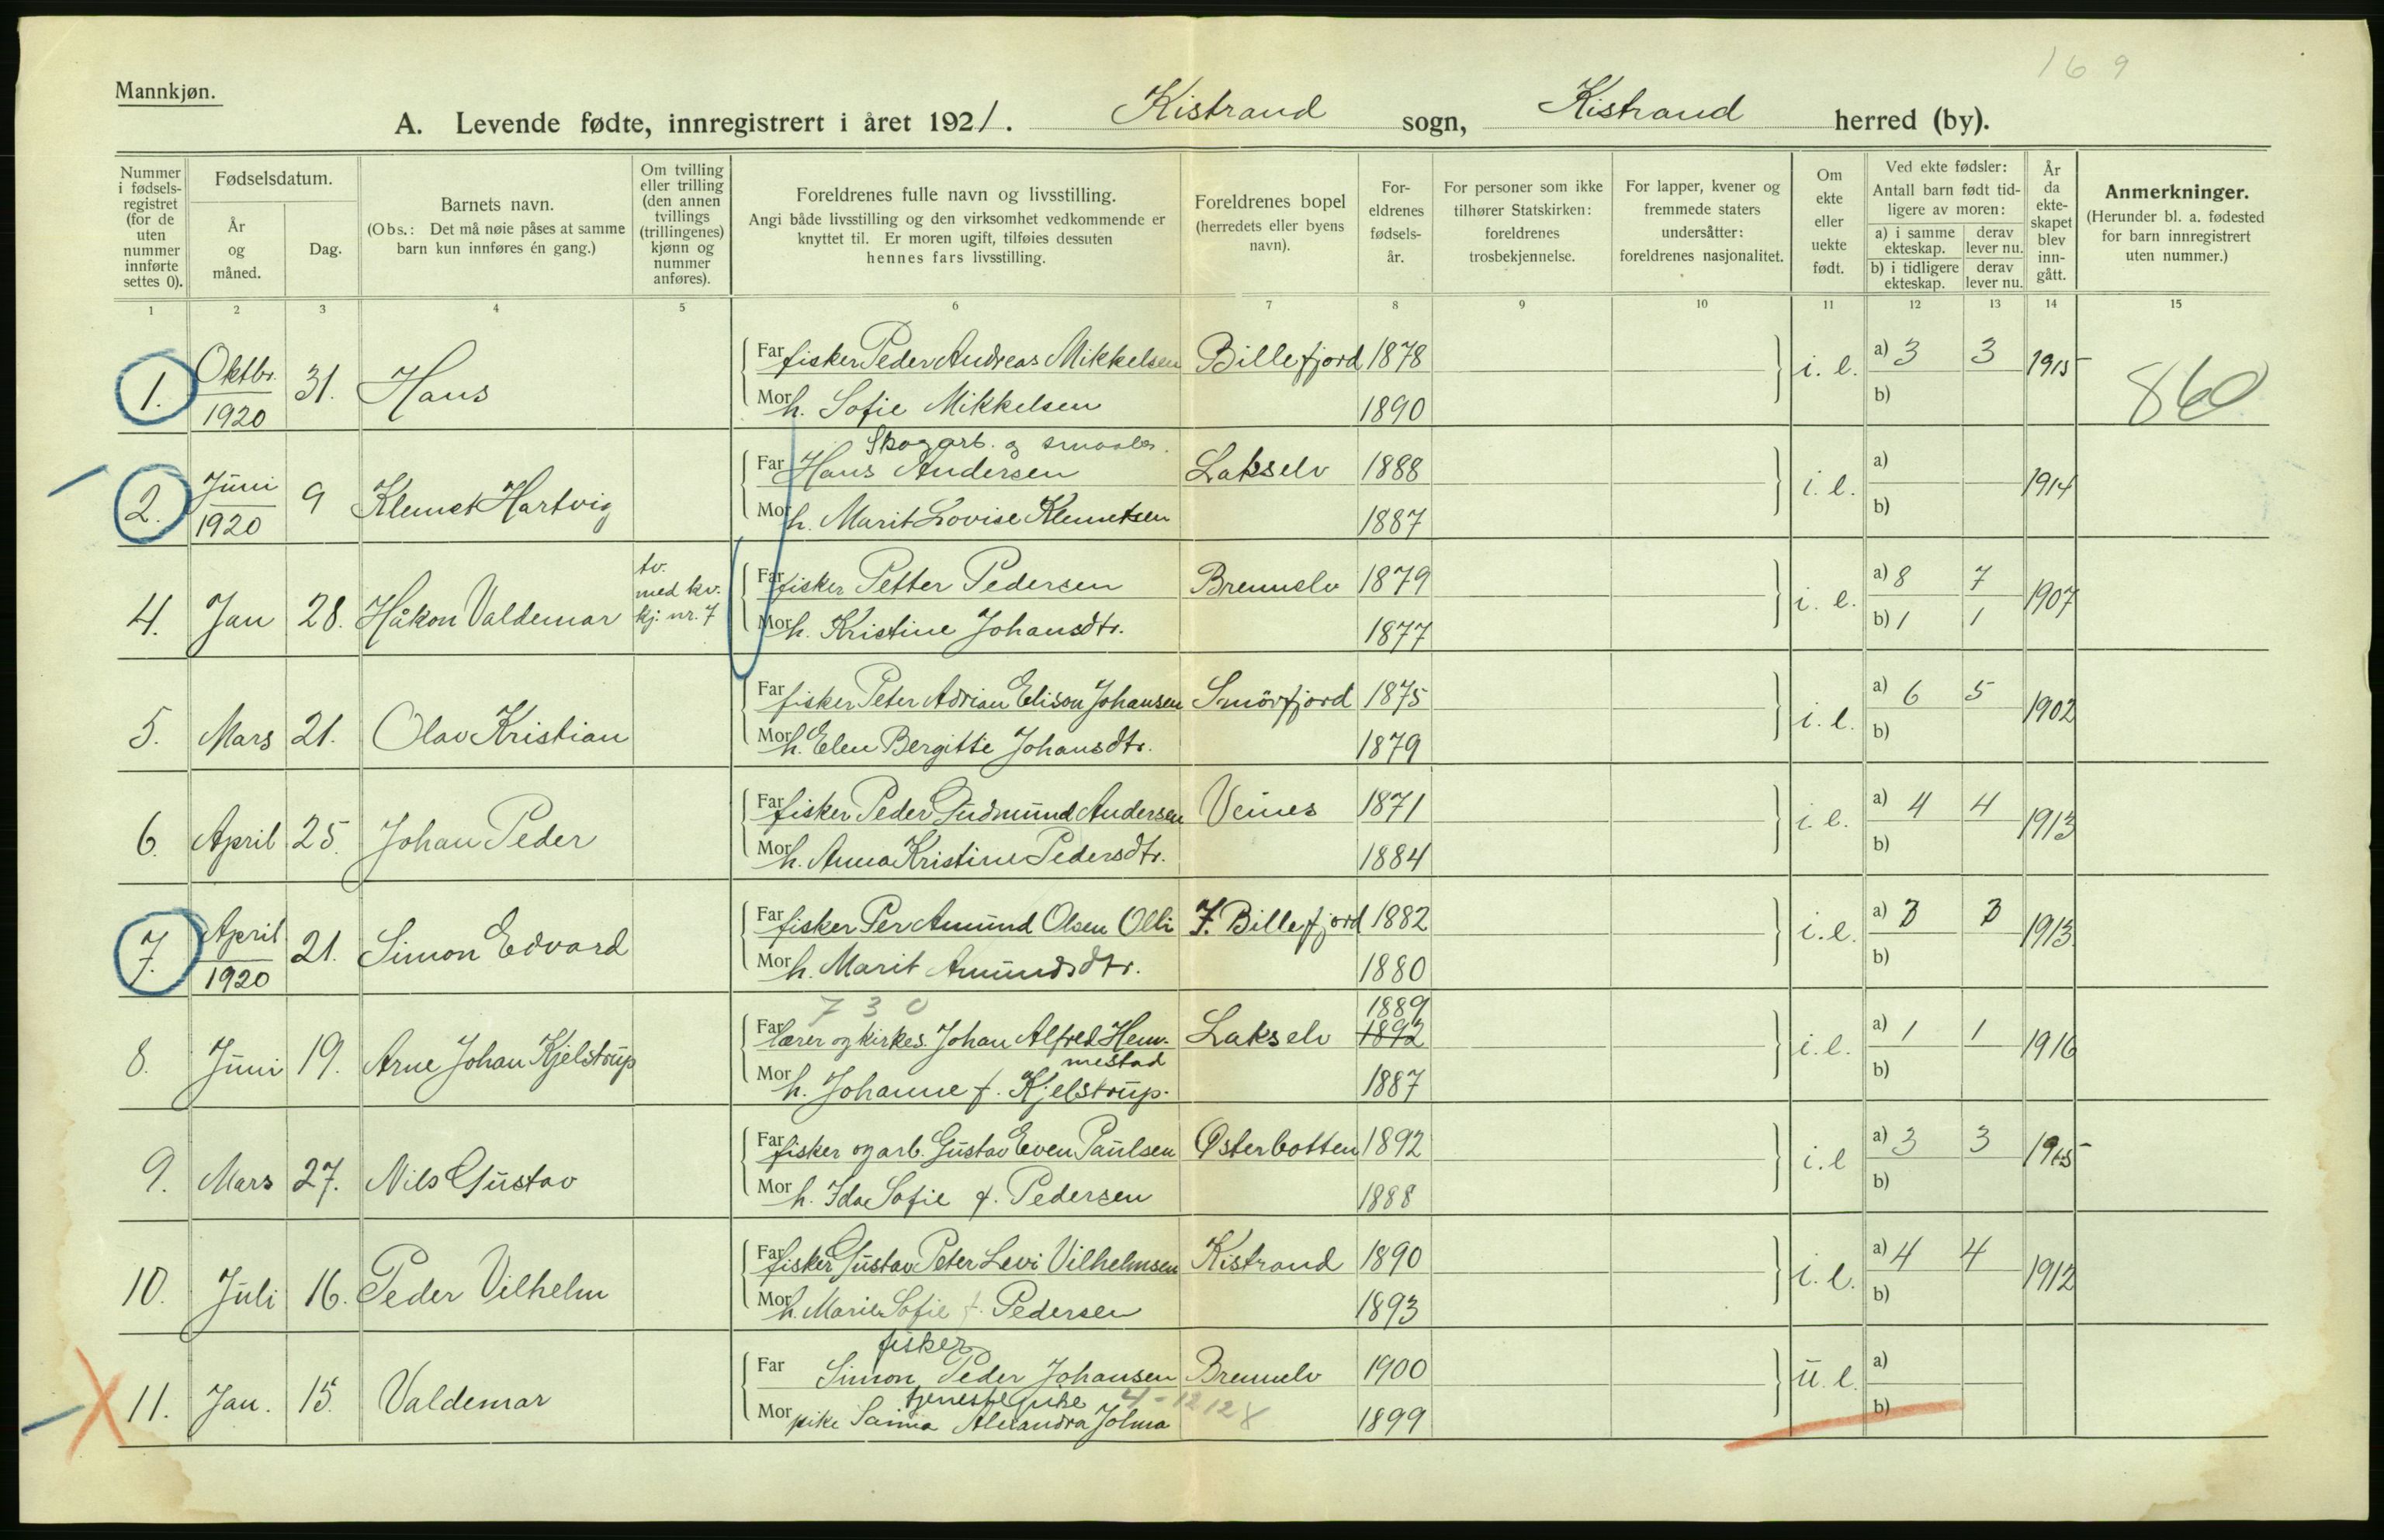 169
Mannkjøn.
A. Levende fødte, innregistrert i året 1921. Kistrand sogn, Kistrand herred (by).
Nummer i fødsels-registret (for de uten nummer innførte settes 0).
Fødselsdatum.
År og måned.
Dag.
Barnets navn.
(Obs.: Det må nøie påses at samme barn kun innføres én gang.)
Om tvilling eller trilling (den annen tvillings (trillingenes) kjønn og nummer anføres).
Foreldrenes fulle navn og livsstilling.
Angi både livsstilling og den virksomhet vedkommende er knyttet til. Er moren ugift, tilføies dessuten hennes fars livsstilling.
Foreldrenes bopel
(herredets eller byens navn).
For-eldrenes fødsels-år.
For personer som ikke tilhører Statskirken: foreldrenes trosbekjennelse.
For lapper, kvener og fremmede staters undersåtter: foreldrenes nasjonalitet.
Om ekte eller uekte født.
Ved ekte fødsler:
Antall barn født tid-ligere av moren:
a) i samme ekteskap.
derav lever nu.
b) i tidligere ekteskap.
derav lever nu.
År da ekte-skapet blev inn-gått.
Anmerkninger.
(Herunder bl. a. fødested for barn innregistrert uten nummer.)
1 2 3 4 5 6 7 8 9 10 11 12 13 14 15
1. Oktbr. 1920 31. Hans
Far fisker Peder Andreas Mikkelsen Billefjord 1878 i. e. a) 3 3 1915 860
Mor h. Sofie Mikkelsen 1890 b)
Skogarb. og
2. Juni 1920 9 Klemet Hartvig
Far Hans Andersen Lakselv 1888 i. e. a) 1914
Mor h. Marit Lovise Klemetsen 1887 b)
4. Jan 28. Håkon Valdemar tv. med kv. kj. nr. 7
Far fisker Petter Pedersen Brennelv 1879 i. e. a) 8 7 1907
Mor h. Kristine Johansdtr. 1877 b) 1 1
5. Mars 21. Olav Kristian
Far fisker Peter Adrian Elison Johansen Smörfjord 1875 i. e. a) 6 5 1902
Mor h. Elen Bergitte Johansdtr. 1879 b)
6. April 25. Johan Peder
Far fisker Peder Gudmund Andersen Veines 1871 i. e. a) 4 4 1913
Mor h. Anna Kristine Pedersdtr. 1884 b)
7. April 1920 21. Simon Edvard
Far fisker Per Amund Olsen Olli I. Billefjord 1882 i. e. a) 3 3 1913
Mor h. Marit Amundsdtr. 1880 b)
730 1889
8. Juni 19. Arne Johan Kjelstrup
Far lærer og kirkes. Johan Alfred Hem-mestad Lakselv 1892 i. e. a) 1 1 1916
Mor h. Johanne f. Kjelstrup. 1887 b)
9. Mars 27. Nils Gustav
Far fisker og arb. Gustav Even Paulsen Østerbotten 1892 i. e a) 3 3 1915
Mor h. Ida Sofie f. Pedersen 1888 b)
10. Juli 16. Peder Vilhelm
Far fisker Gustav Peter Levi Vilhelmsen Kistrand 1890 i. e. a) 4 4 1912
Mor h. Marie Sofie f. Pedersen 1893 b)
fisker
11. Jan. 15. Valdemar
Far Simon Peder Johansen Brennelv 1900 u. e. a)
tjenestepike 4-12 12 8
Mor pike Saima Alexandra Jolma 1899 b)